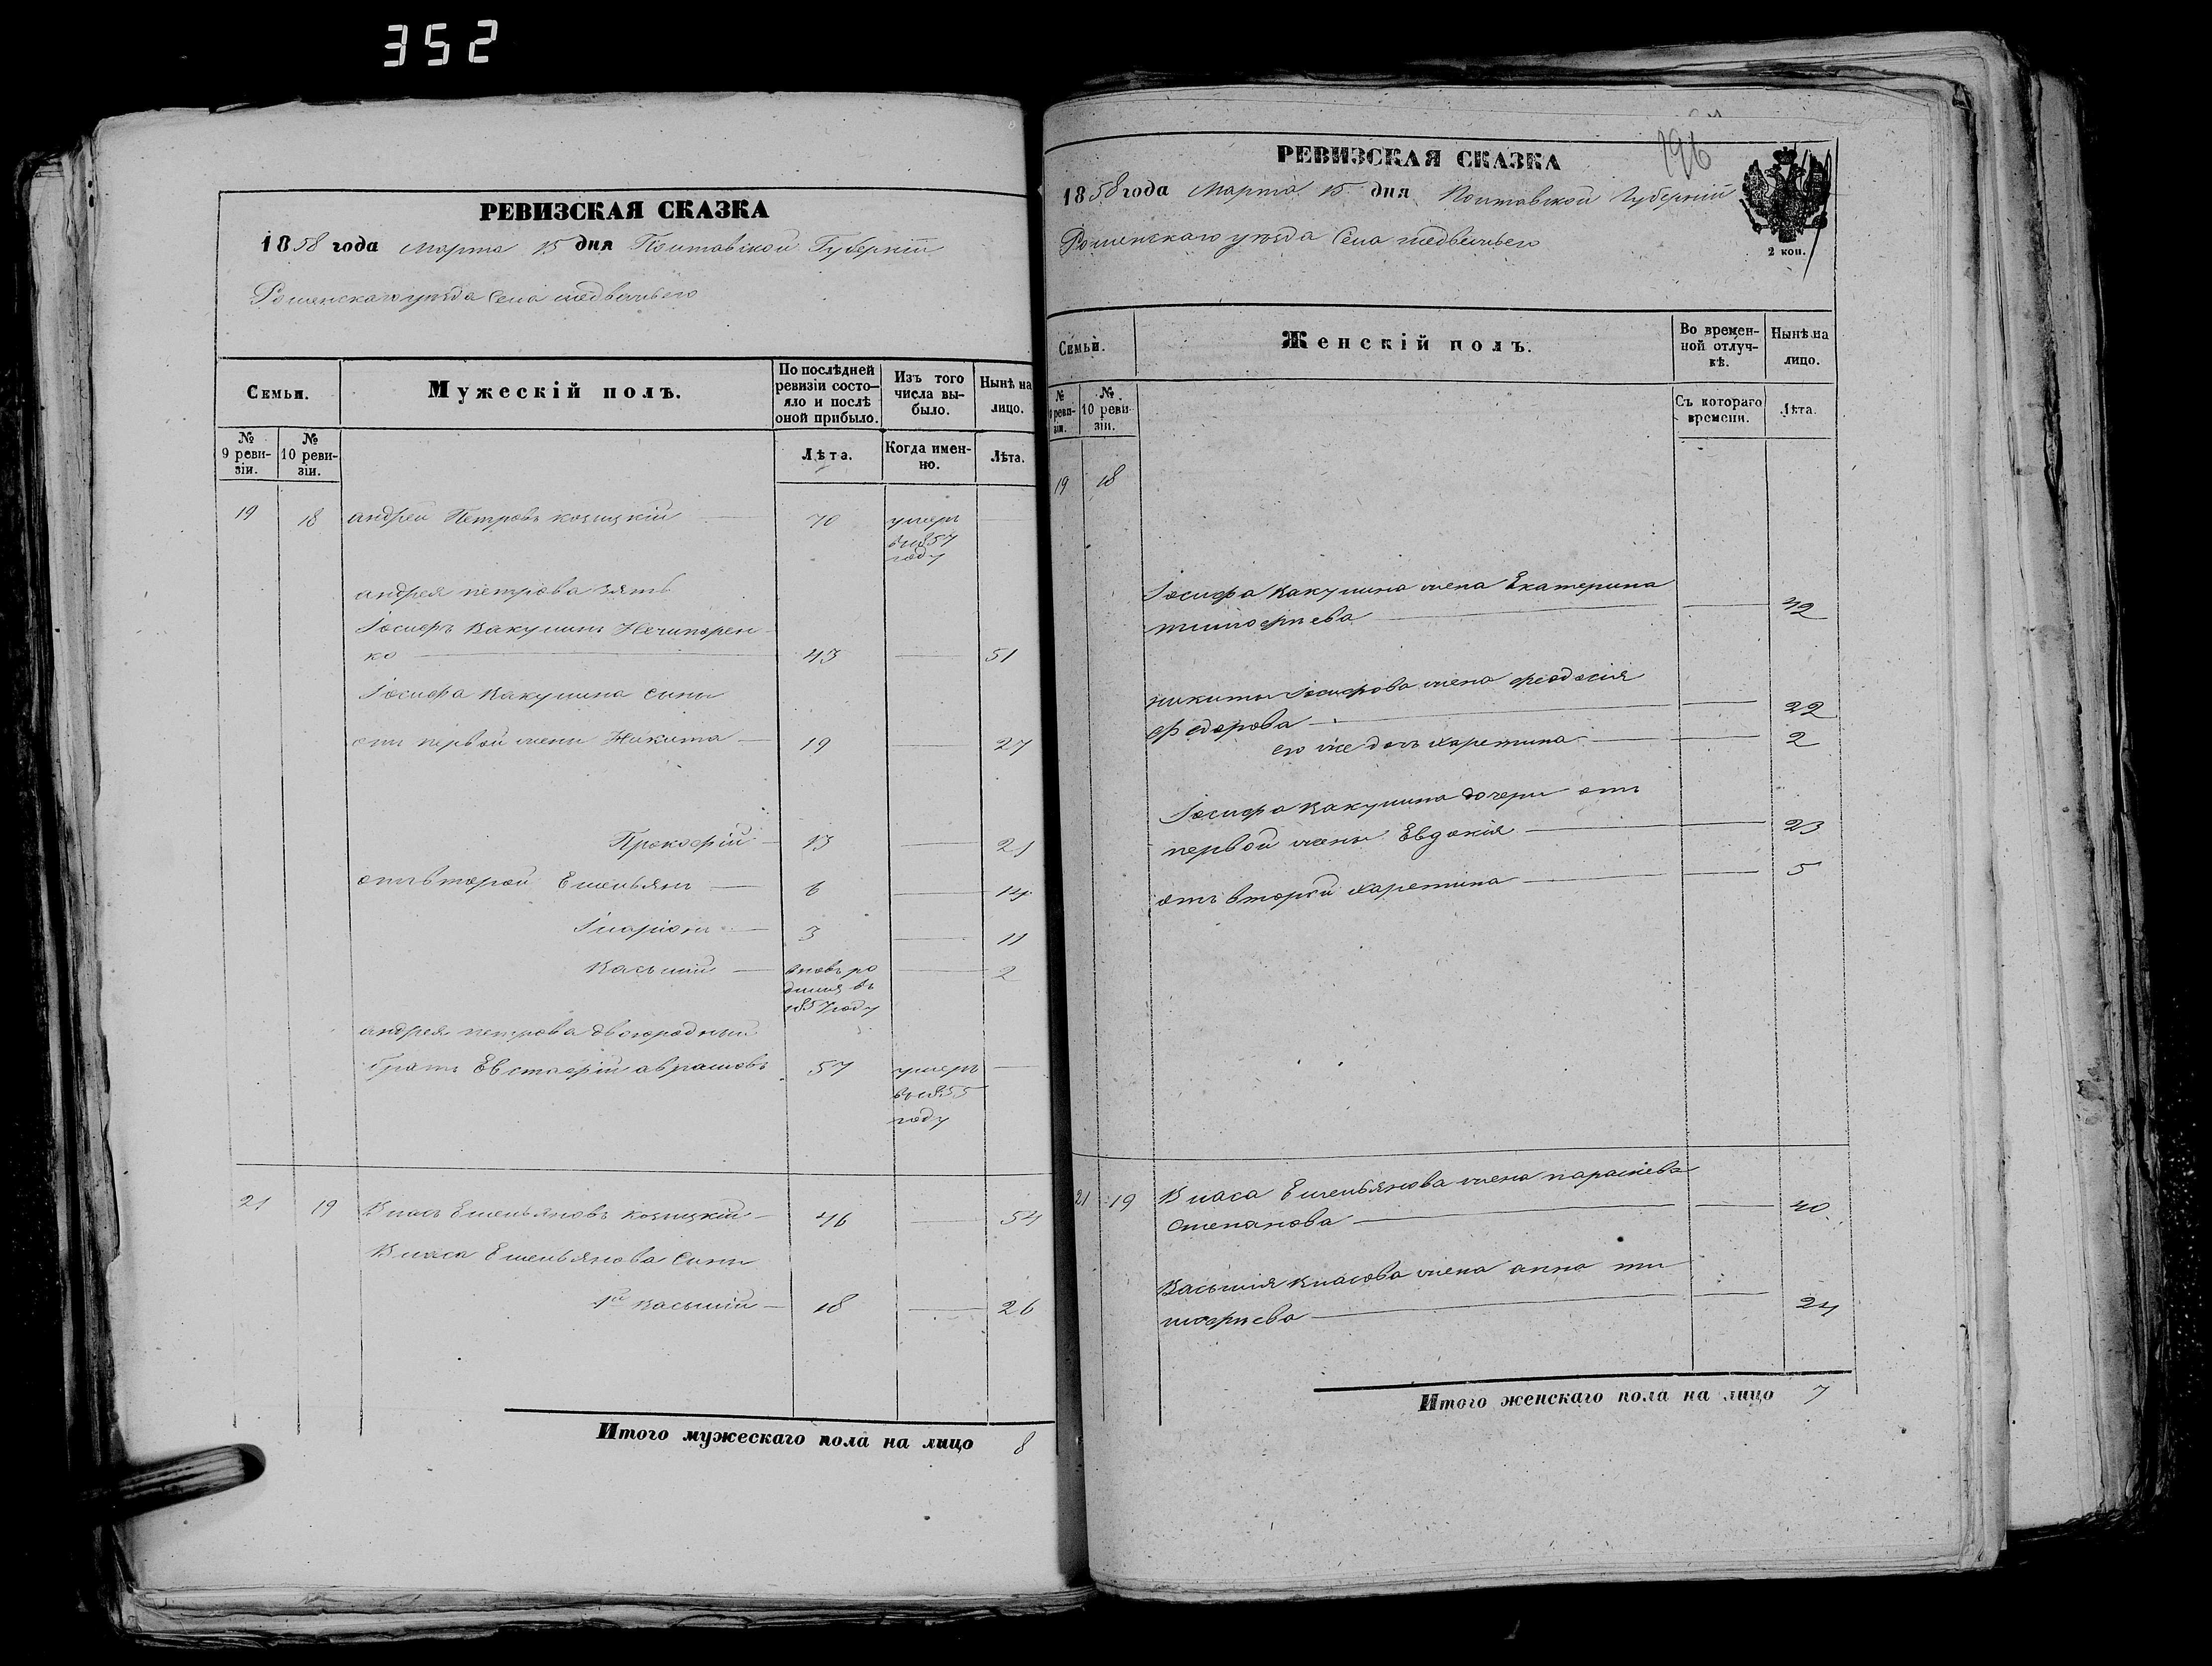 352
РЕВИЗСКАЯ СКАЗКА
1858 года Марта 15 дня Полтавской Губерніи
Роменскаго уѣзда Села медвежьего
Семьи.
Мужескій полъ.
По послѣдней ревизіи состояло и послѣ оной прибыло.
Изъ того числа выбыло.
Нынѣ на лицо.
№ 9 ревизіи.
№ 10 ревизіи.
Лѣта.
Когда именно.
Лѣта.
19 18 андрей Петровъ козицкій 70 умеръ
въ 1857
году
андрея петрова зять
Іосифъ Вакулинъ Нечипорен
ко 43 51
Іосифа Вакулина сины
отъ первой жены Никита 19 27
Прокофій 13 21
отъ второй Емельянъ 6 14
Іларіонъ 3 11
Васылій вновь ро 2
дился въ
1857 году
андрея петрова двоюродный
братъ Евстафій аврамовъ 57 умеръ
въ 1855
году
21 19 Власъ Емельяновъ козицкій 46 54
Власа Емельянова сыны
1й Васылій 18 26
Итого мужескаго пола на лицо 8
196
РЕВИЗСКАЯ СКАЗКА
1858 года Марта 15 дня Полтавской Губерній
Роменскаго уѣзда Села медвежьего
2 коп.
Семьи.
Женскій полъ.
Во временной отлучкѣ.
Нынѣ на лицо.
№ 9 ревизіи.
№ 10 ревизіи.
Съ котораго времени.
Лѣта.
19 18
Іосифа Вакулина жена Екатерина
тимофѣева 42
никиты Іосифова жена феодосія
федорова 22
его же дочь харетина 2
Іосифа Вакулина дочери отъ
первой жены Евдокія 23
отъ второй харетина 5
21 19 Власа Емельянова жена параскева
степанова 40
Васылія Власова жена анна ти
мофѣева 24
Итого женскаго пола на лицо 7